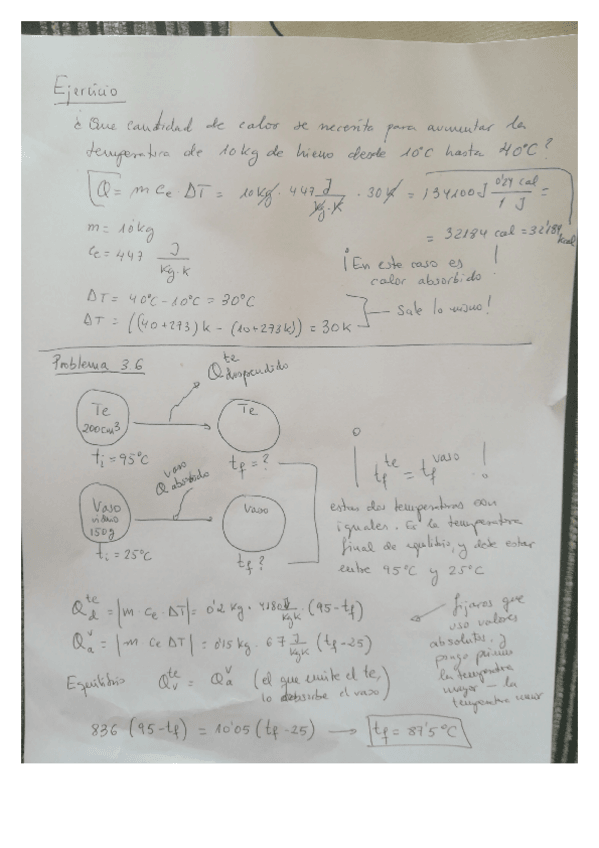 Ejercicio
¿ Que cantidad de calor se necesita para aumentar la
temperatura de 10 kg de hierro desde 10°C hasta 40°C?
Q = m Ce ΔT = 10 kg · 447 J/kg·K · 30 K = 134100 J 0'24 cal / 1 J =
= 32184 cal = 32'184 kcal
m = 10 kg
Ce = 447 J/kg·K
¡En este caso es
calor absorbido!
ΔT = 40°C - 10°C = 30°C
ΔT = ((40+273)K - (10+273K)) = 30K
Sale lo mismo!
Problema 3.6
Q te desprendido
Te
200cm³
Te
ti = 95°C
tf = ?
Q vaso absorbido
Vaso
vidrio
150g
Vaso
ti = 25°C
tf?
¡ tf te = tf vaso !
estas dos temperaturas son
iguales. Es la temperatura
final de equilibrio, y debe estar
entre 95°C y 25°C
Qd te = |m Ce ΔT| = 0'2 kg · 4180 J/kgK · (95-tf)
Qa v = |m Ce ΔT| = 0'15 kg · 67 J/kgK (tf-25)
fijaros que
uso valores
absolutos y
pongo primero
la temperatura
mayor — la
temperatura menor
Equilibrio Qv te = Qa v (el que emite el te,
lo absorbe el vaso)
836 (95-tf) = 10'05 (tf-25) → tf = 87'5°C